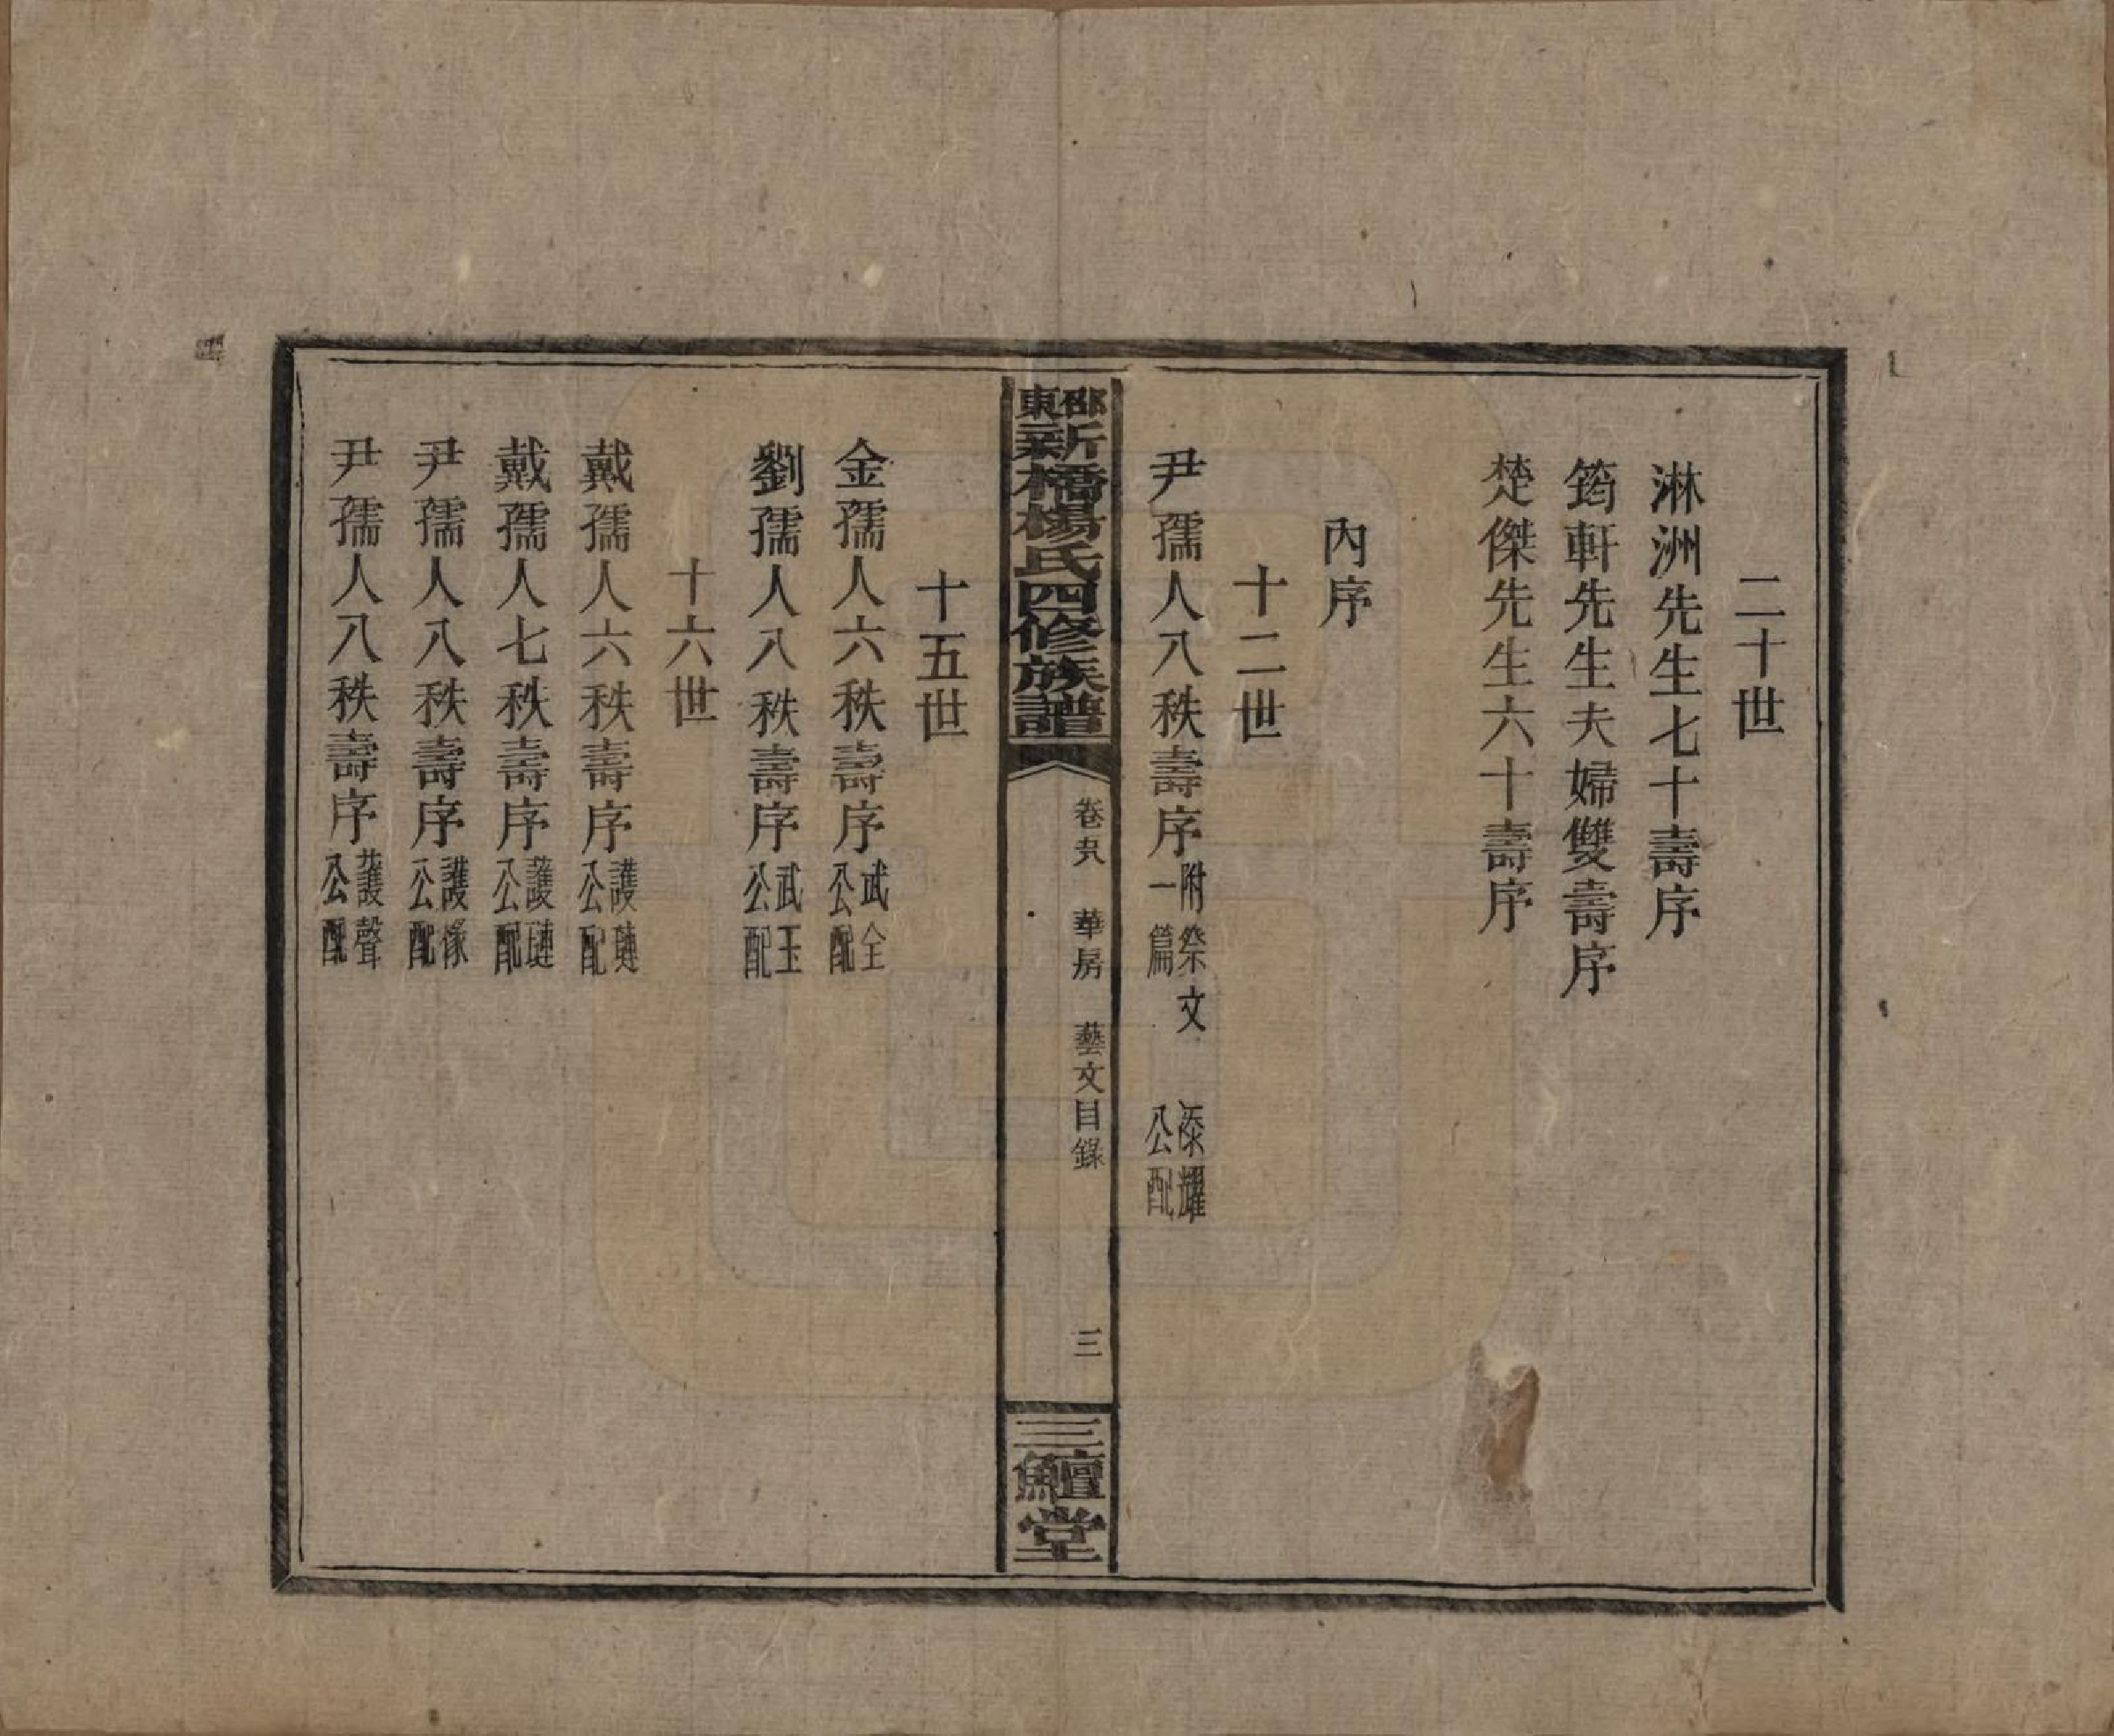 二十世
淋洲先生七十壽序
筠軒先生夫婦雙壽序
楚傑先生六十壽序
內序
十二世
尹孺人八秩壽序附祭文一篇 泰耀公配
邵東新橋楊氏四修族譜
卷 華房 藝文目錄 三
三鱣堂
十五世
金孺人六秩壽序武全公配
劉孺人八秩壽序武玉公配
十六世
戴孺人六秩壽序護璉公配
戴孺人七秩壽序護璉公配
尹孺人八秩壽序護公配
尹孺人八秩壽序護聲公配